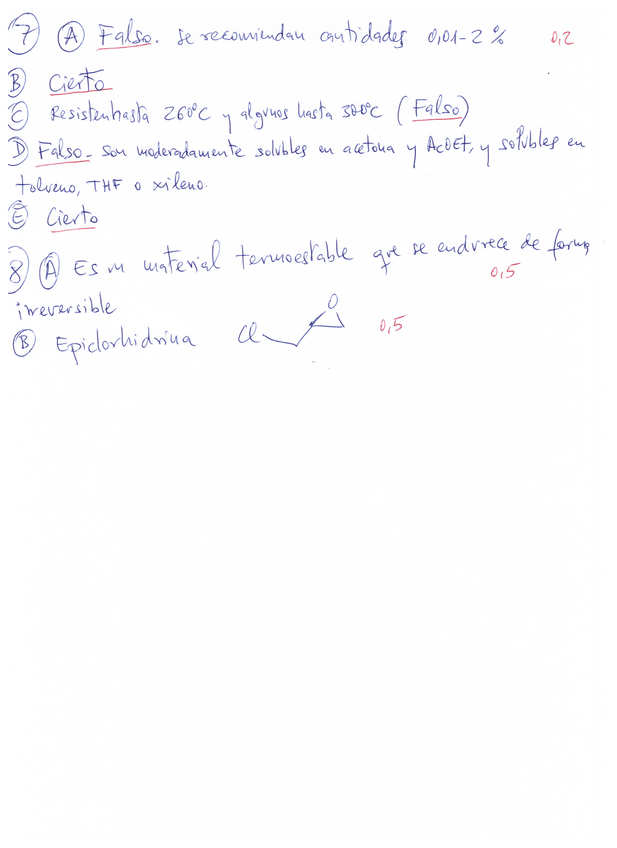 7 A Falso. Se recomiendan cantidades 0,01-2 % 0,2
B Cierto
C Resisten hasta 260ºC y algunos hasta 300ºC (Falso)
D Falso - Son moderadamente solubles en acetona y AcOEt, y solubles en
tolueno, THF o xileno.
E Cierto
8 A Es un material termoestable que se endurece de forma
0,5
irreversible
B Epiclorhidrina Cl O 0,5